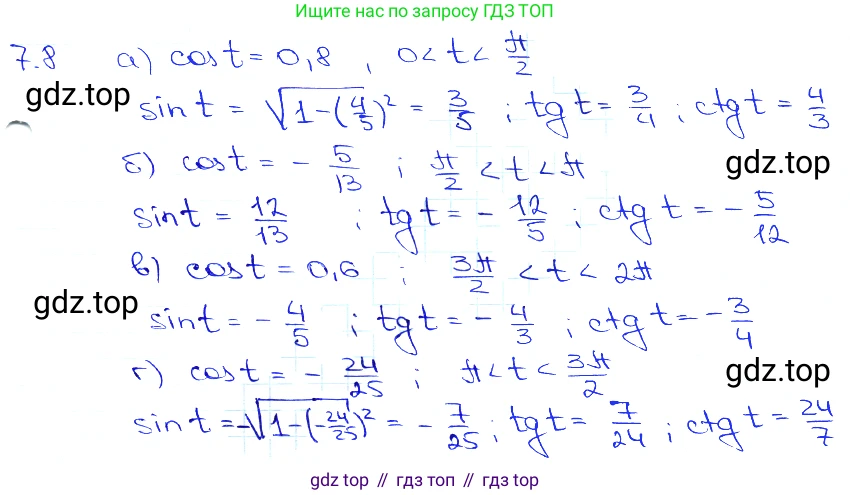 Ищите нас по запросу ГДЗ ТОП
7.8 а) cos t = 0,8 , 0 < t < π/2
gdz.top
sin t = √(1-(4/5)²) = 3/5 ; tg t = 3/4 ; ctg t = 4/3
б) cos t = - 5/13 ; π/2 < t < π
gdz.top
sin t = 12/13 ; tg t = - 12/5 ; ctg t = - 5/12
в) cos t = 0,6 ; 3π/2 < t < 2π
gdz.top
sin t = - 4/5 ; tg t = - 4/3 ; ctg t = - 3/4
г) cos t = - 24/25 ; π < t < 3π/2
gdz.top
sin t = -√(1-(-24/25)²) = - 7/25 ; tg t = 7/24 ; ctg t = 24/7
gdz top // гдз топ // gdz top